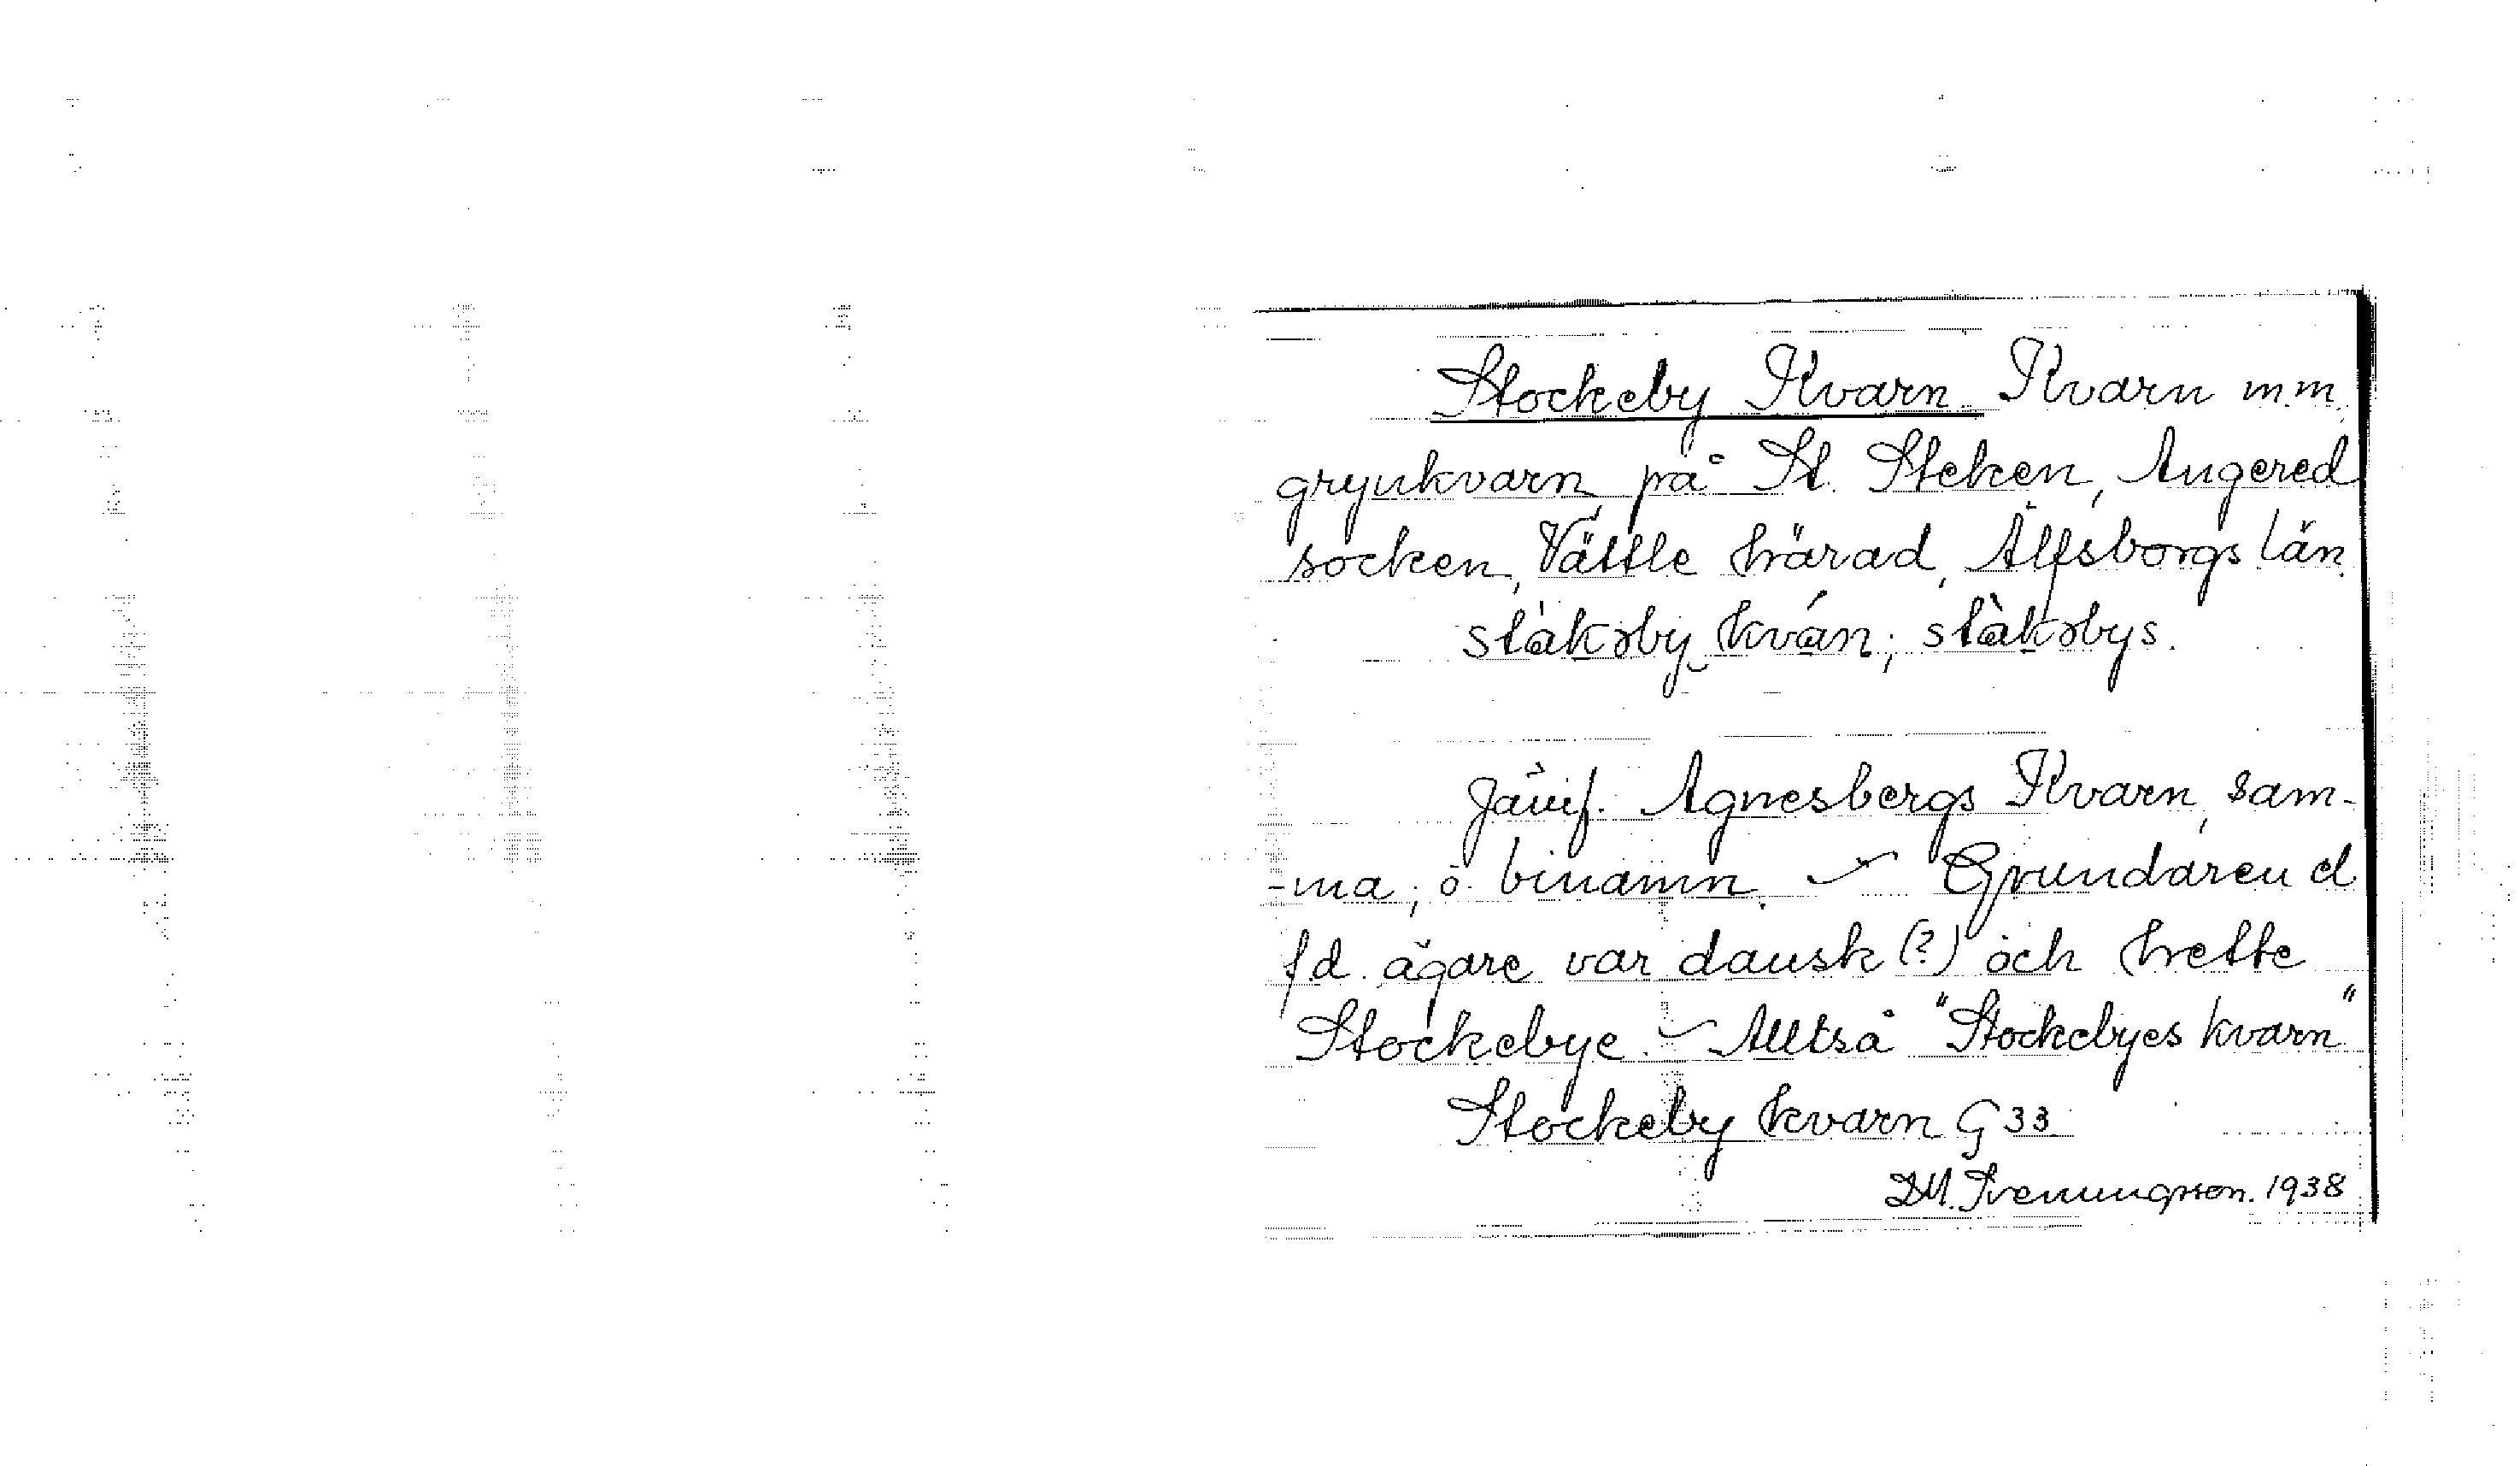 Stockeby Kvarn. Kvarn m.m.
grynkvarn, på St. Steken, Angered
socken, Vättle härad, Älfsborgs län.
Jämf. Agnesbergs Kvarn, sam-
-ma; ö. binamn. – Grundaren el
f.d. ägare var dansk (?) och hette
Stockebye. – Alltså "Stockebyes kvarn"
Stockeby kvarn G 33
1938